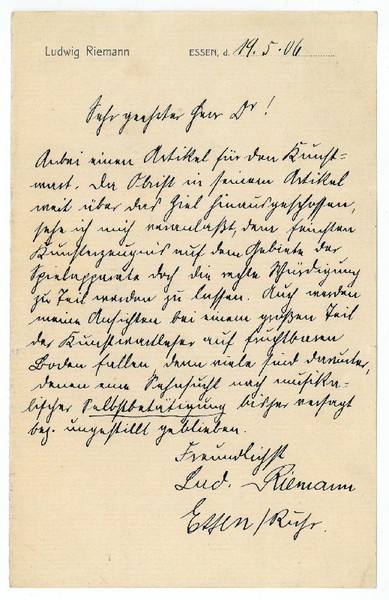 Ludwig Riemann
ESSEN, d. 19.5.06
Sehr geehrter Herr Dr!
Anbei einen Artikel für den Kunst-
wart. Da Obrist in seinem Artikel
weit über das Ziel hinausgeschossen,
sehe ich mich veranlaßt, dem
Kunsterzeugnis auf dem Gebiete der
Spielapparate doch die rechte Würdigung
zu Teil werden zu lassen. Auch werden
meine Ansichten bei einem großen Teil
der Kunstwartleser auf fruchtbaren
Boden fallen, denn viele sind darunter,
denen eine Sehnsucht nach musika-
lischer Selbstbetätigung bisher versagt
bez. ungestillt geblieben.
Freundlichst
Lud. Riemann
Essen/Ruhr.